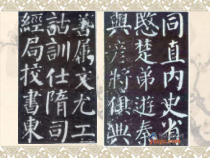 同直内史省
愍楚弟遊秦
與彦將俱典
善属文尤工
詁訓仕隋司
經局校書東